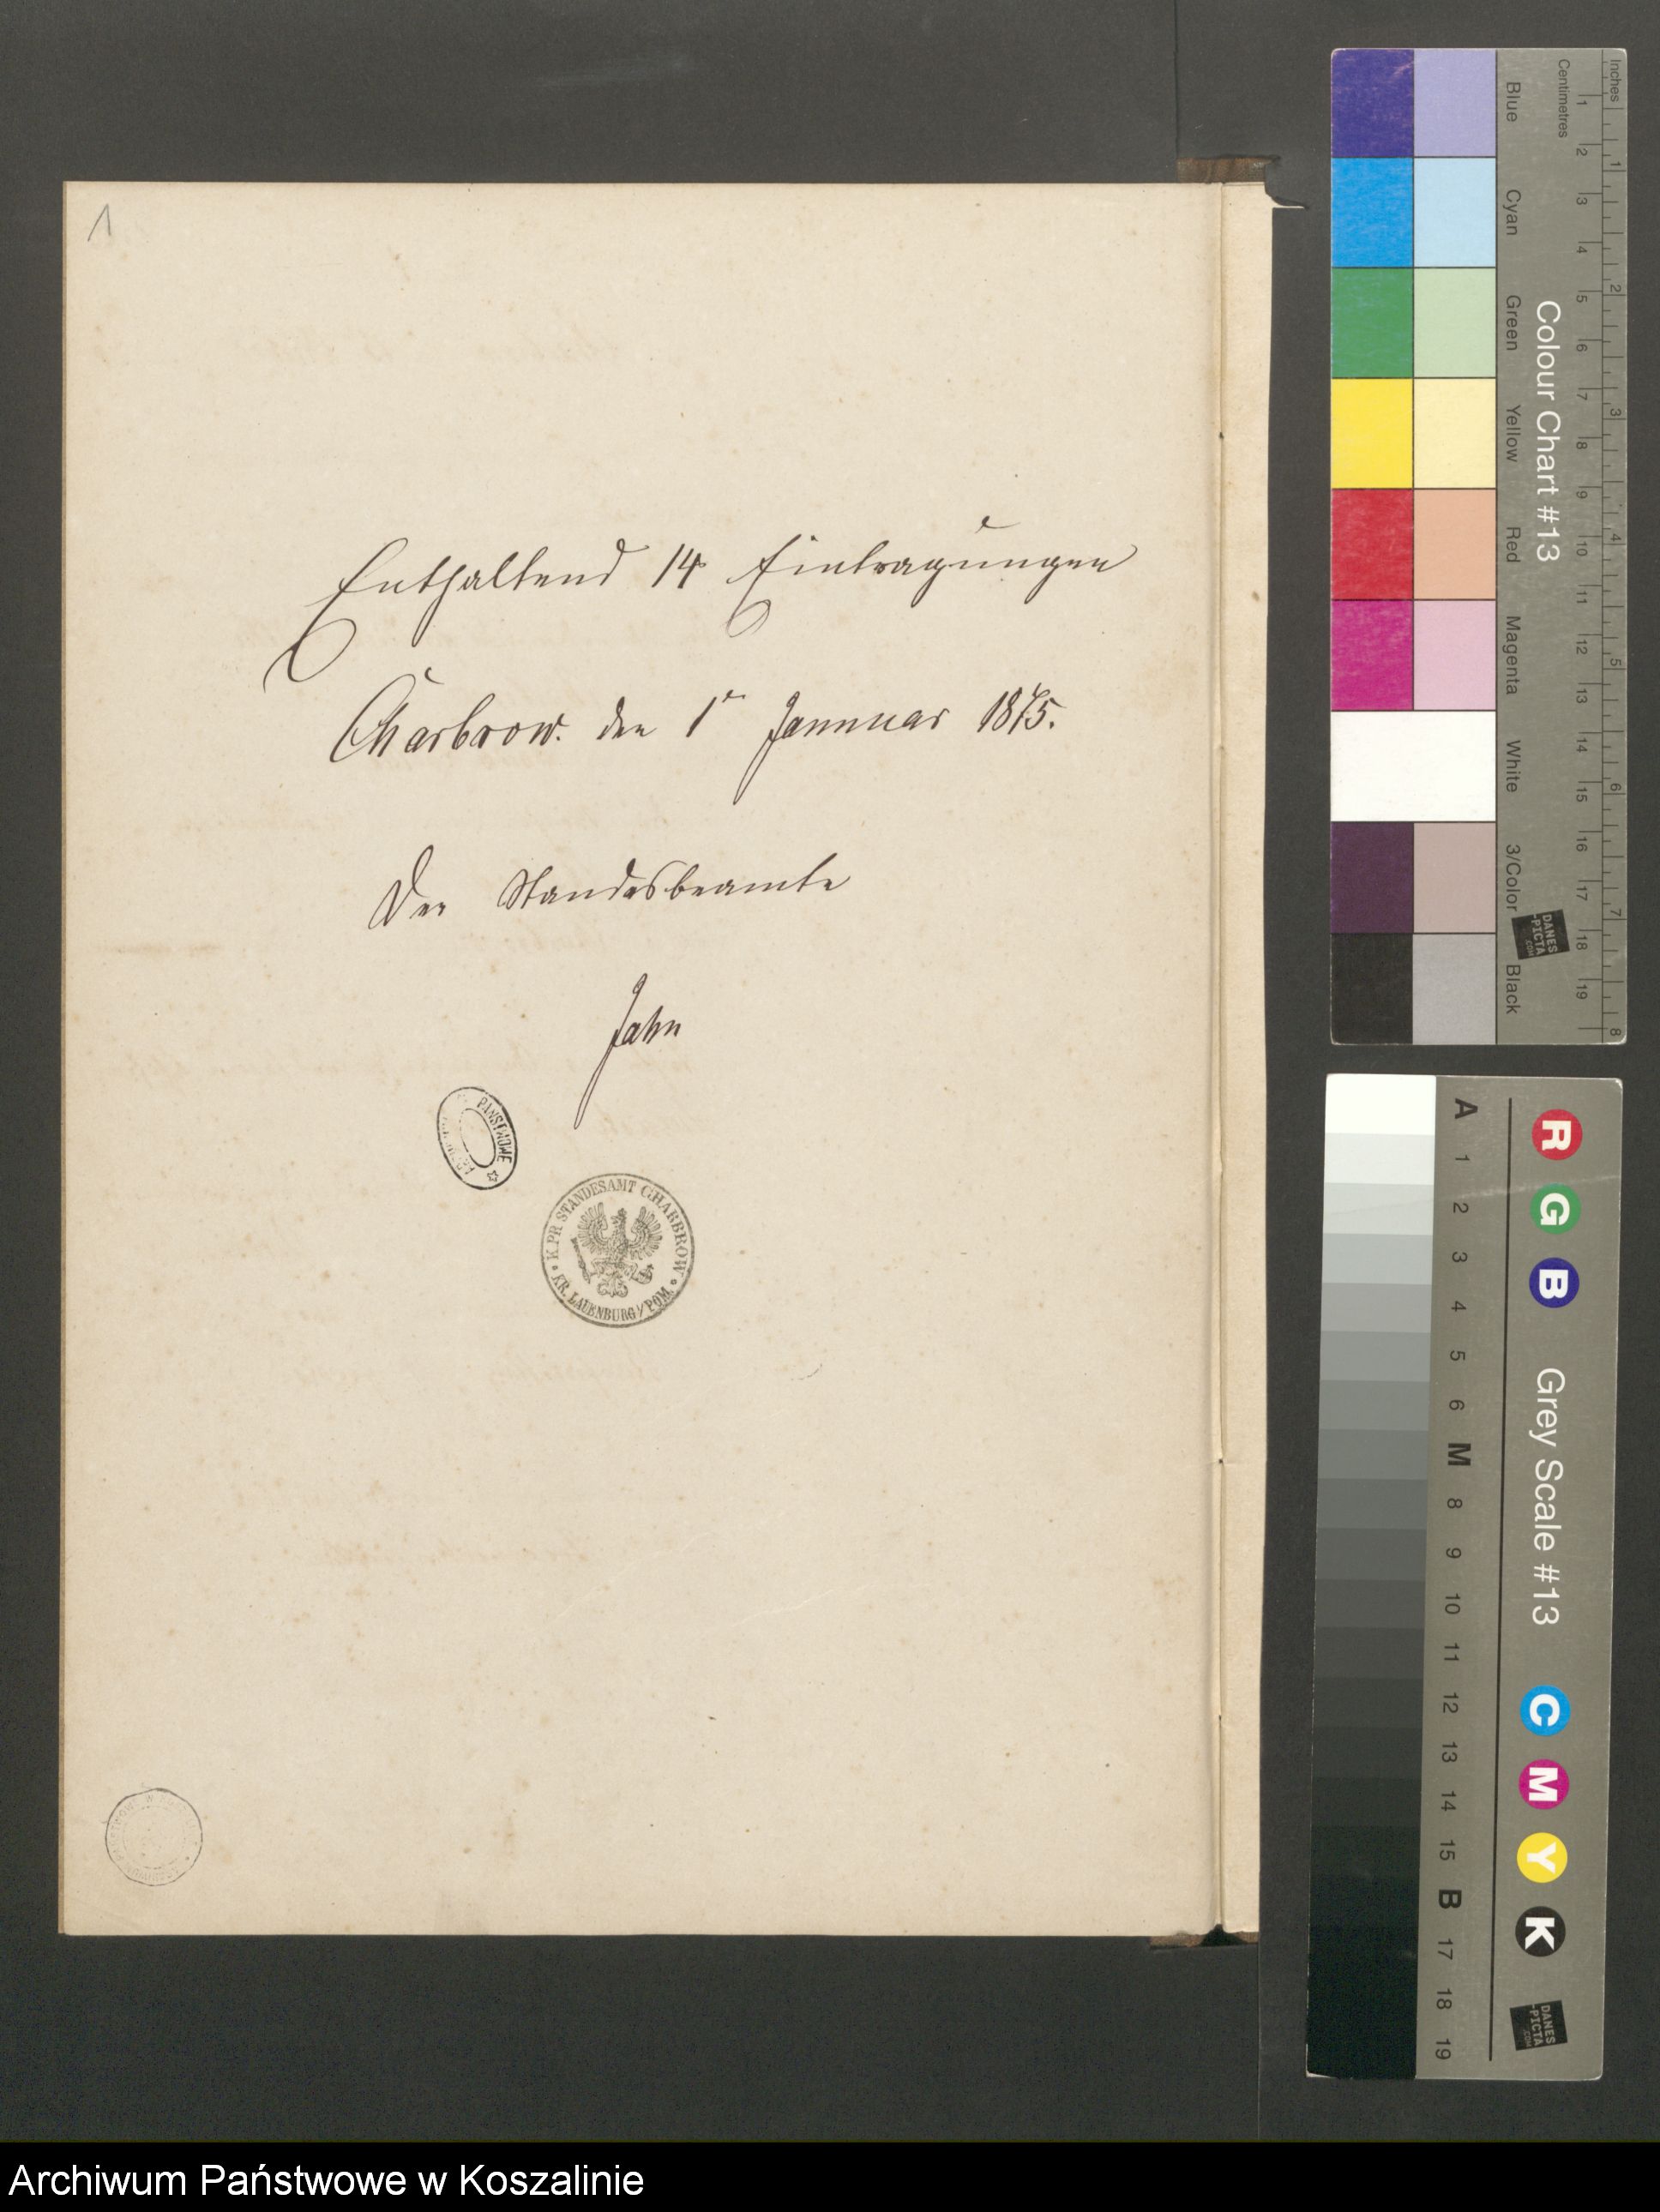 1
Enthaltend 14 Eintragungen
Charbrow. den 1ᵉ Januuar 1875.
Der Standesbeamte
Jahn
PAŃSTWOWE
K. PR. STANDESAMT CHARBROW
KR. LAUENBURG/POM.
Inches
Centimetres
1 2 3 4 5 6 7 8 9 10 11 12 13 14 15 16 17 18 19
1 2 3 4 5 6 7 8
Colour Chart #13
Blue
Cyan
Green
Yellow
Red
Magenta
White
3/Color
Black
DANES
-PICTA
.COM
A 1 2 3 4 5 6 M 8 9 10 11 12 13 14 15 B 17 18 19
R G B
Grey Scale #13
C M Y K
DANES
-PICTA
.COM
Archiwum Państwowe w Koszalinie